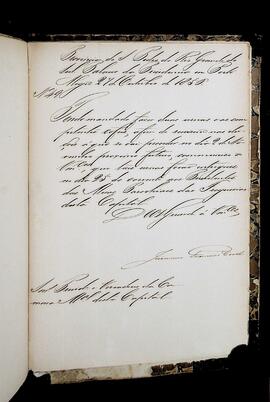 Provincia de S. Pedro do Rio Grande do
Sul Palacio da Presidencia em Porto
Alegre 27 de Outubro de 185
Nº 49
Tendo mandado fazer duas urnas com
para a eleição
que se ha de proceder no dia 2 de No-
vembro proximo futuro, communico a
Vmces que as urnas forão entregues
no dia 25 do corrente aos Presidentes
das Mesas Parochiaes das Freguezias
desta Capital.
Deos Guarde a Vmces
Snrs Presid.e e Vereadores da Ca-
mara M.al desta Capital